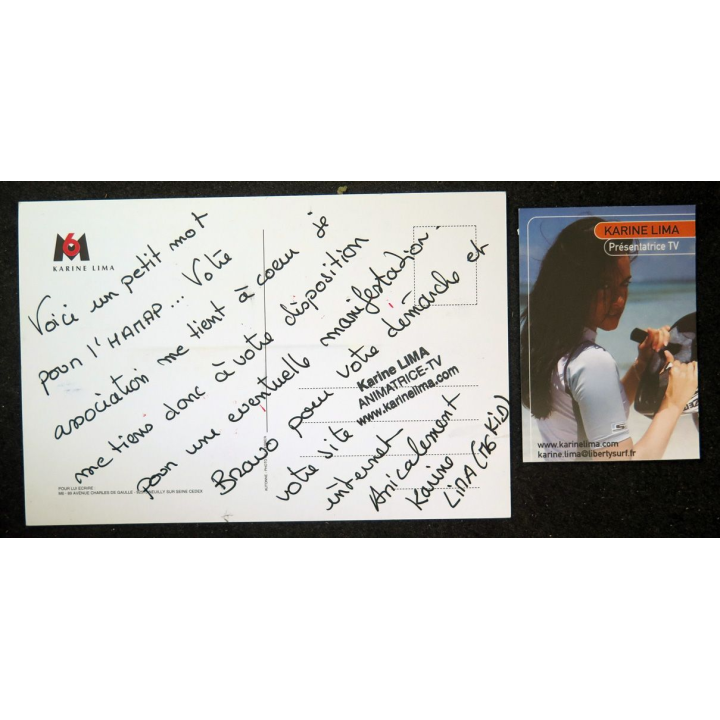 M6
KARINE LIMA
Voici un petit mot
pour l'HAMAP... Votre
association me tient à coeur je
me tiens donc à votre disposition
pour une eventuelle manifestation.
Bravo pour votre démarche et
votre site
internet
Amicalement
Karine
LIMA (M6 KID)
Karine LIMA
ANIMATRICE-TV
www.karinelima.com
POUR LUI ECRIRE :
M6 - 89 AVENUE CHARLES DE GAULLE - NEUILLY SUR SEINE CEDEX
KARINE LIMA
Présentatrice TV
www.karinelima.com
karine.lima@libertysurf.fr